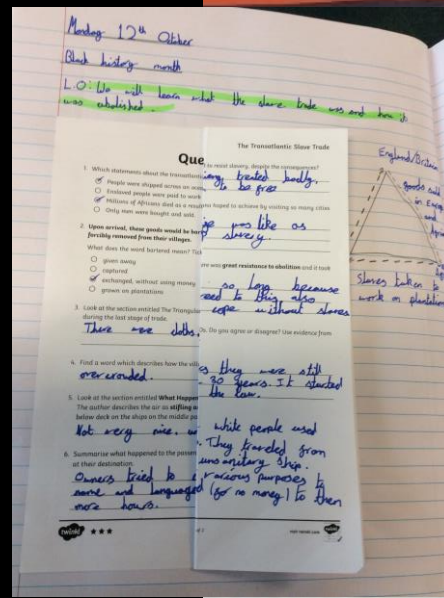 Monday 12th October
Black history month
L.O: We will learn what the slave trade was and how it
was abolished.
The Transatlantic Slave Trade
Que
1. Which statements about the transatlantic
People were shipped across an ocean
Enslaved people were paid to work
Millions of Africans died as a result
Only men were bought and sold.
2. Upon arrival, these goods would be bart
forcibly removed from their villages.
What does the word bartered mean? Tick
given away
captured
exchanged, without using money
grown on plantations
3. Look at the section entitled The Triangular
during the last stage of trade.
There were cloths.
4. Find a word which describes how the
overcrowded.
5. Look at the section entitled What Happen
The author describes the air as stifling a
below deck on the ships on the middle pa
Not very nice.
6. Summarise what happened to the passen
at their destination.
Owners tried to
name and language
more hours.
twinkl
to resist slavery, despite the consequences?
treated badly,
to be free
hoped to achieve by visiting so many cities
was like as
slavery.
ere was great resistance to abolition and it took
so long because
need to this also
cope without slaves
Do you agree or disagree? Use evidence from
as they were still
30 years. It started
the law.
white people used
They traveled from
unsanitary ship.
various purposes to
(for no money) to then
visit twinkl.com
England/Britain
goods sold
in
and
Slaves taken to
work on plantation